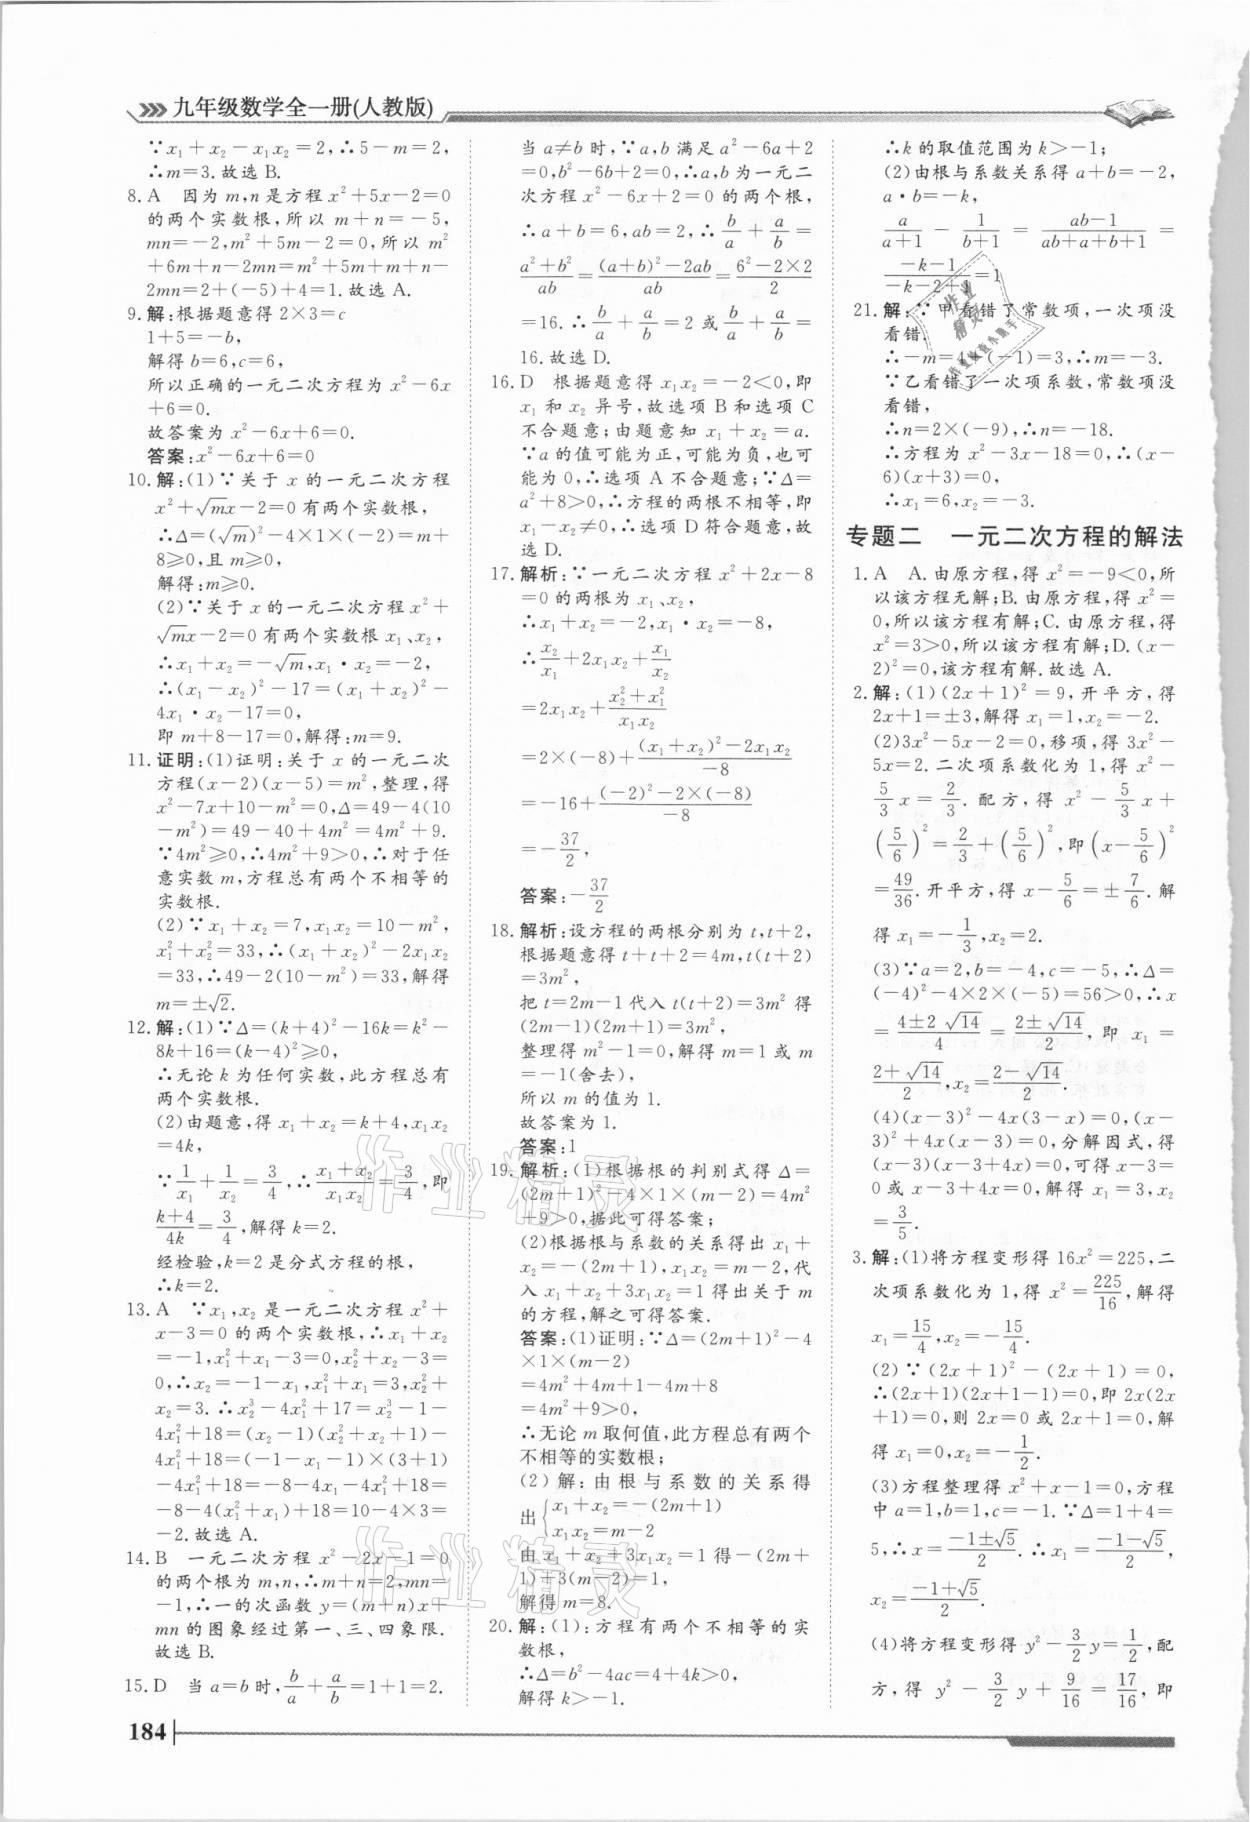 九年级数学全一册(人教版)
∵x₁+x₂-x₁x₂=2,∴5-m=2,
∴m=3.故选 B.
8. A　因为 m,n 是方程 x²+5x-2=0
的两个实数根,所以 m+n=-5,
mn=-2,m²+5m-2=0,所以 m²
+6m+n-2mn=m²+5m+m+n-
2mn=2+(-5)+4=1.故选 A.
9. 解:根据题意得 2×3=c
1+5=-b,
解得 b=6,c=6,
所以正确的一元二次方程为 x²-6x
+6=0.
故答案为 x²-6x+6=0.
答案:x²-6x+6=0
10. 解:(1)∵关于 x 的一元二次方程
x²+√m x-2=0 有两个实数根,
∴Δ=(√m)²-4×1×(-2)=m+
8≥0,且 m≥0,
解得:m≥0.
(2)∵关于 x 的一元二次方程 x²+
√m x-2=0 有两个实数根 x₁、x₂,
∴x₁+x₂=-√m,x₁·x₂=-2,
∴(x₁-x₂)²-17=(x₁+x₂)²-
4x₁·x₂-17=0,
即 m+8-17=0,解得:m=9.
11. 证明:(1)证明:关于 x 的一元二次
方程(x-2)(x-5)=m²,整理,得
x²-7x+10-m²=0,Δ=49-4(10
-m²)=49-40+4m²=4m²+9.
∵4m²≥0,∴4m²+9>0,∴对于任
意实数 m,方程总有两个不相等的
实数根.
(2)∵x₁+x₂=7,x₁x₂=10-m²,
x₁²+x₂²=33,∴(x₁+x₂)²-2x₁x₂
=33,∴49-2(10-m²)=33,解得
m=±√2.
12. 解:(1)∵Δ=(k+4)²-16k=k²-
8k+16=(k-4)²≥0,
∴无论 k 为任何实数,此方程总有
两个实数根.
(2)由题意,得 x₁+x₂=k+4,x₁x₂
=4k,
∵1/x₁+1/x₂=3/4,∴(x₁+x₂)/(x₁x₂)=3/4,即
(k+4)/4k=3/4,解得 k=2.
经检验,k=2 是分式方程的根,
∴k=2.
13. A　∵x₁,x₂ 是一元二次方程 x²+
x-3=0 的两个实数根,∴x₁+x₂
=-1,x₁²+x₁-3=0,x₂²+x₂-3=
0,∴x₂=-1-x₁,x₁²+x₁=3,x₂²+
x₂=3.∴x₂³-4x₁²+17=x₂³-1-
4x₁²+18=(x₂-1)(x₂²+x₂+1)-
4x₁²+18=(-1-x₁-1)×(3+1)
-4x₁²+18=-8-4x₁-4x₁²+18=
-8-4(x₁²+x₁)+18=10-4×3=
-2.故选 A.
14. B　一元二次方程 x²-2x-1=0
的两个根为 m,n,∴m+n=2,mn=
-1,∴一的次函数 y=(m+n)x+
mn 的图象经过第一、三、四象限.
故选 B.
15. D　当 a=b 时,b/a+a/b=1+1=2.
当 a≠b 时,∵a,b 满足 a²-6a+2
=0,b²-6b+2=0,∴a,b 为一元二
次方程 x²-6x+2=0 的两个根,
∴a+b=6,ab=2,∴b/a+a/b=
(a²+b²)/ab=((a+b)²-2ab)/ab=(6²-2×2)/2
=16.∴b/a+a/b=2 或 b/a+a/b=
16.故选 D.
16. D　根据题意得 x₁x₂=-2<0,即
x₁ 和 x₂ 异号,故选项 B 和选项 C
不合题意;由题意知 x₁+x₂=a.
∵a 的值可能为正,可能为负,也可
能为 0,∴选项 A 不合题意;∵Δ=
a²+8>0,∴方程的两根不相等,即
x₁-x₂≠0,∴选项 D 符合题意,故
选 D.
17. 解析:∵一元二次方程 x²+2x-8
=0 的两根为 x₁、x₂,
∴x₁+x₂=-2,x₁·x₂=-8,
∴x₂/x₁+2x₁x₂+x₁/x₂
=2x₁x₂+(x₂²+x₁²)/(x₁x₂)
=2×(-8)+((x₁+x₂)²-2x₁x₂)/(-8)
=-16+((-2)²-2×(-8))/(-8)
=-37/2,
答案:-37/2
18. 解析:设方程的两根分别为 t,t+2,
根据题意得 t+t+2=4m,t(t+2)
=3m²,
把 t=2m-1 代入 t(t+2)=3m² 得
(2m-1)(2m+1)=3m²,
整理得 m²-1=0,解得 m=1 或 m
=-1(舍去),
所以 m 的值为 1.
故答案为 1.
答案:1
19. 解析:(1)根据根的判别式得 Δ=
(2m+1)²-4×1×(m-2)=4m²
+9>0,据此可得答案;
(2)根据根与系数的关系得出 x₁+
x₂=-(2m+1),x₁x₂=m-2,代
入 x₁+x₂+3x₁x₂=1 得出关于 m
的方程,解之可得答案.
答案:(1)证明:∵Δ=(2m+1)²-4
×1×(m-2)
=4m²+4m+1-4m+8
=4m²+9>0,
∴无论 m 取何值,此方程总有两个
不相等的实数根;
(2) 解:由根与系数的关系得
出{x₁+x₂=-(2m+1)
x₁x₂=m-2
由 x₁+x₂+3x₁x₂=1 得-(2m+
1)+3(m-2)=1,
解得 m=8.
20. 解:(1):方程有两个不相等的实
数根,
∴Δ=b²-4ac=4+4k>0,
解得 k>-1.
∴k 的取值范围为 k>-1;
(2)由根与系数关系得 a+b=-2,
a·b=-k,
a/(a+1)-1/(b+1)=(ab-1)/(ab+a+b+1)=
(-k-1)/(-k-2+1)=1
21. 解:∵甲看错了常数项,一次项没
看错,
∴-m=4+(-1)=3,∴m=-3.
∵乙看错了一次项系数,常数项没
看错,
∴n=2×(-9),∴n=-18.
∴方程为 x²-3x-18=0,∴(x-
6)(x+3)=0,
∴x₁=6,x₂=-3.
专题二　一元二次方程的解法
1. A　A.由原方程,得 x²=-9<0,所
以该方程无解;B.由原方程,得 x²=
0,所以该方程有解;C.由原方程,得
x²=3>0,所以该方程有解;D.(x-
2)²=0,该方程有解.故选 A.
2. 解:(1)(2x+1)²=9,开平方,得
2x+1=±3,解得 x₁=1,x₂=-2.
(2)3x²-5x-2=0,移项,得 3x²-
5x=2.二次项系数化为 1,得 x²-
5/3 x=2/3.配方,得 x²-5/3 x+
(5/6)²=2/3+(5/6)²,即(x-5/6)²
=49/36.开平方,得 x-5/6=±7/6.解
得 x₁=-1/3,x₂=2.
(3)∵a=2,b=-4,c=-5,∴Δ=
(-4)²-4×2×(-5)=56>0,∴x
=(4±2√14)/4=(2±√14)/2,即 x₁=
(2+√14)/2,x₂=(2-√14)/2.
(4)(x-3)²-4x(3-x)=0,(x-
3)²+4x(x-3)=0,分解因式,得
(x-3)(x-3+4x)=0,可得 x-3=
0 或 x-3+4x=0,解得 x₁=3,x₂
=3/5.
3. 解:(1)将方程变形得 16x²=225,二
次项系数化为 1,得 x²=225/16,解得
x₁=15/4,x₂=-15/4.
(2)∵(2x+1)²-(2x+1)=0,
∴(2x+1)(2x+1-1)=0,即 2x(2x
+1)=0,则 2x=0 或 2x+1=0,解
得 x₁=0,x₂=-1/2.
(3)方程整理得 x²+x-1=0,方程
中 a=1,b=1,c=-1.∵Δ=1+4=
5,∴x=(-1±√5)/2.∴x₁=(-1-√5)/2,
x₂=(-1+√5)/2.
(4)将方程变形得 y²-3/2 y=1/2,配
方,得 y²-3/2 y+9/16=17/16,即
184
作业精灵
作业精灵
作业
精灵